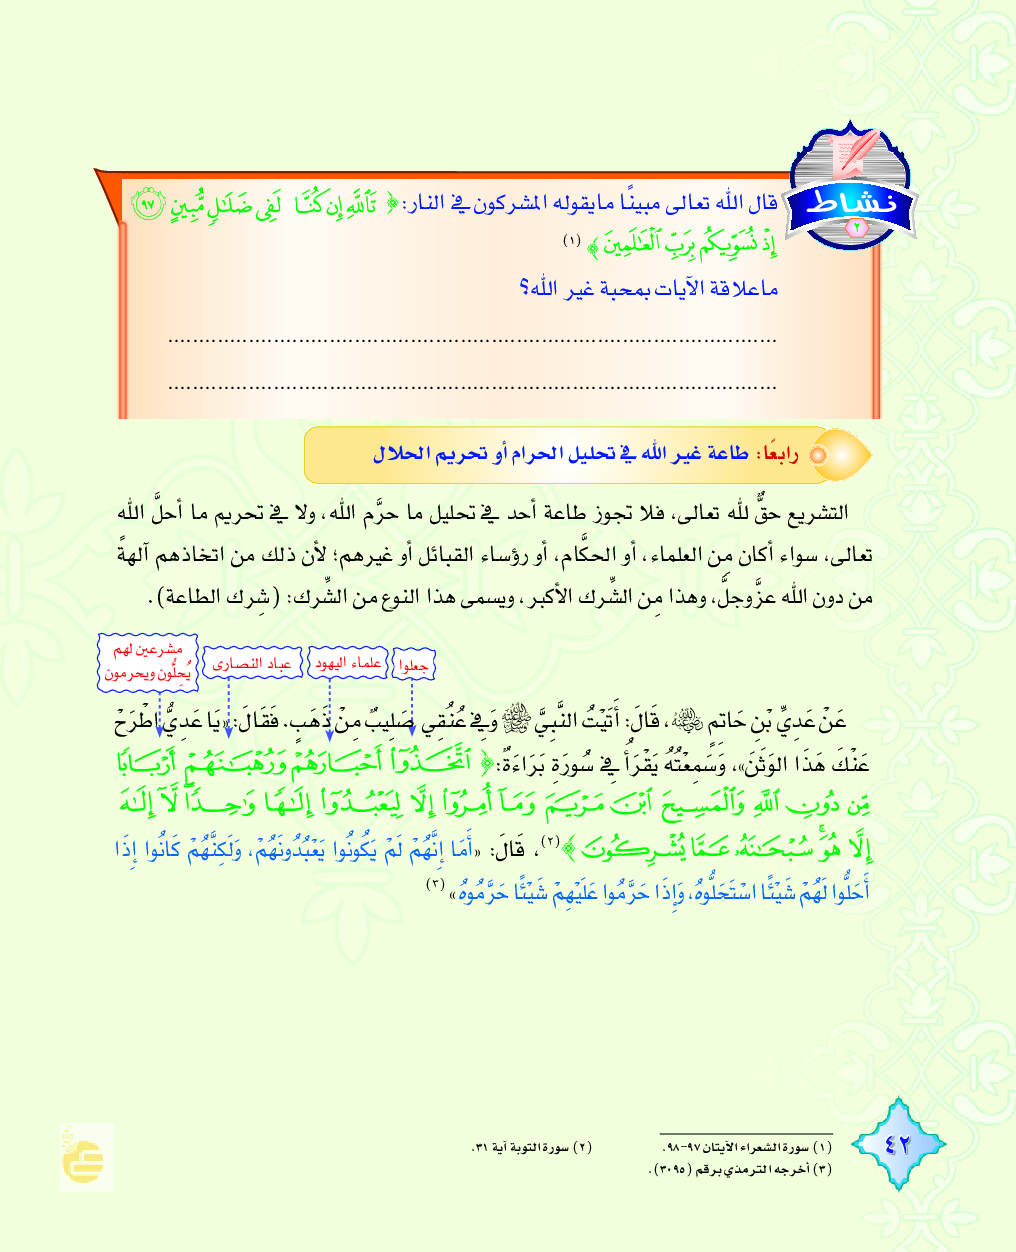 نشاط
٢
قال الله تعالى مبينًا مايقوله المشركون في النار: ﴿ تَٱللَّهِ إِن كُنَّا لَفِى ضَلَٰلٍ مُّبِينٍ ٩٧
إِذْ نُسَوِّيكُم بِرَبِّ ٱلْعَٰلَمِينَ ﴾ (١)
ماعلاقة الآيات بمحبة غير الله؟
رابعًا: طاعة غير الله في تحليل الحرام أو تحريم الحلال
التشريع حقٌّ لله تعالى، فلا تجوز طاعة أحد في تحليل ما حرَّم الله، ولا في تحريم ما أحلَّ الله
تعالى، سواء أكان مِن العلماء، أو الحكَّام، أو رؤساء القبائل أو غيرهم؛ لأن ذلك من اتخاذهم آلهةً
من دون الله عزَّوجلَّ، وهذا مِن الشِّرك الأكبر، ويسمى هذا النوع من الشِّرك: (شِرك الطاعة).
جعلوا
علماء اليهود
عباد النصارى
مشرعين لهم
يُحِلُّون ويحرمون
عَنْ عَدِيِّ بْنِ حَاتِمٍ رضي الله عنه، قَالَ: أَتَيْتُ النَّبِيَّ ﷺ وَفِي عُنُقِي صَلِيبٌ مِنْ ذَهَبٍ. فَقَالَ: «يَا عَدِيُّ اطْرَحْ
عَنْكَ هَذَا الوَثَنَ»، وَسَمِعْتُهُ يَقْرَأُ فِي سُورَةِ بَرَاءَةٌ: ﴿ ٱتَّخَذُوٓا۟ أَحْبَارَهُمْ وَرُهْبَٰنَهُمْ أَرْبَابًا
مِّن دُونِ ٱللَّهِ وَٱلْمَسِيحَ ٱبْنَ مَرْيَمَ وَمَآ أُمِرُوٓا۟ إِلَّا لِيَعْبُدُوٓا۟ إِلَٰهًا وَٰحِدًا ۖ لَّآ إِلَٰهَ
إِلَّا هُوَ ۚ سُبْحَٰنَهُۥ عَمَّا يُشْرِكُونَ ﴾(٢)، قَالَ: «أَمَا إِنَّهُمْ لَمْ يَكُونُوا يَعْبُدُونَهُمْ، وَلَكِنَّهُمْ كَانُوا إِذَا
أَحَلُّوا لَهُمْ شَيْئًا اسْتَحَلُّوهُ، وَإِذَا حَرَّمُوا عَلَيْهِمْ شَيْئًا حَرَّمُوهُ» (٣)
(١) سورة الشعراء الآيتان ٩٧-٩٨.
(٢) سورة التوبة آية ٣١.
(٣) أخرجه الترمذي برقم (٣٠٩٥).
٤٢